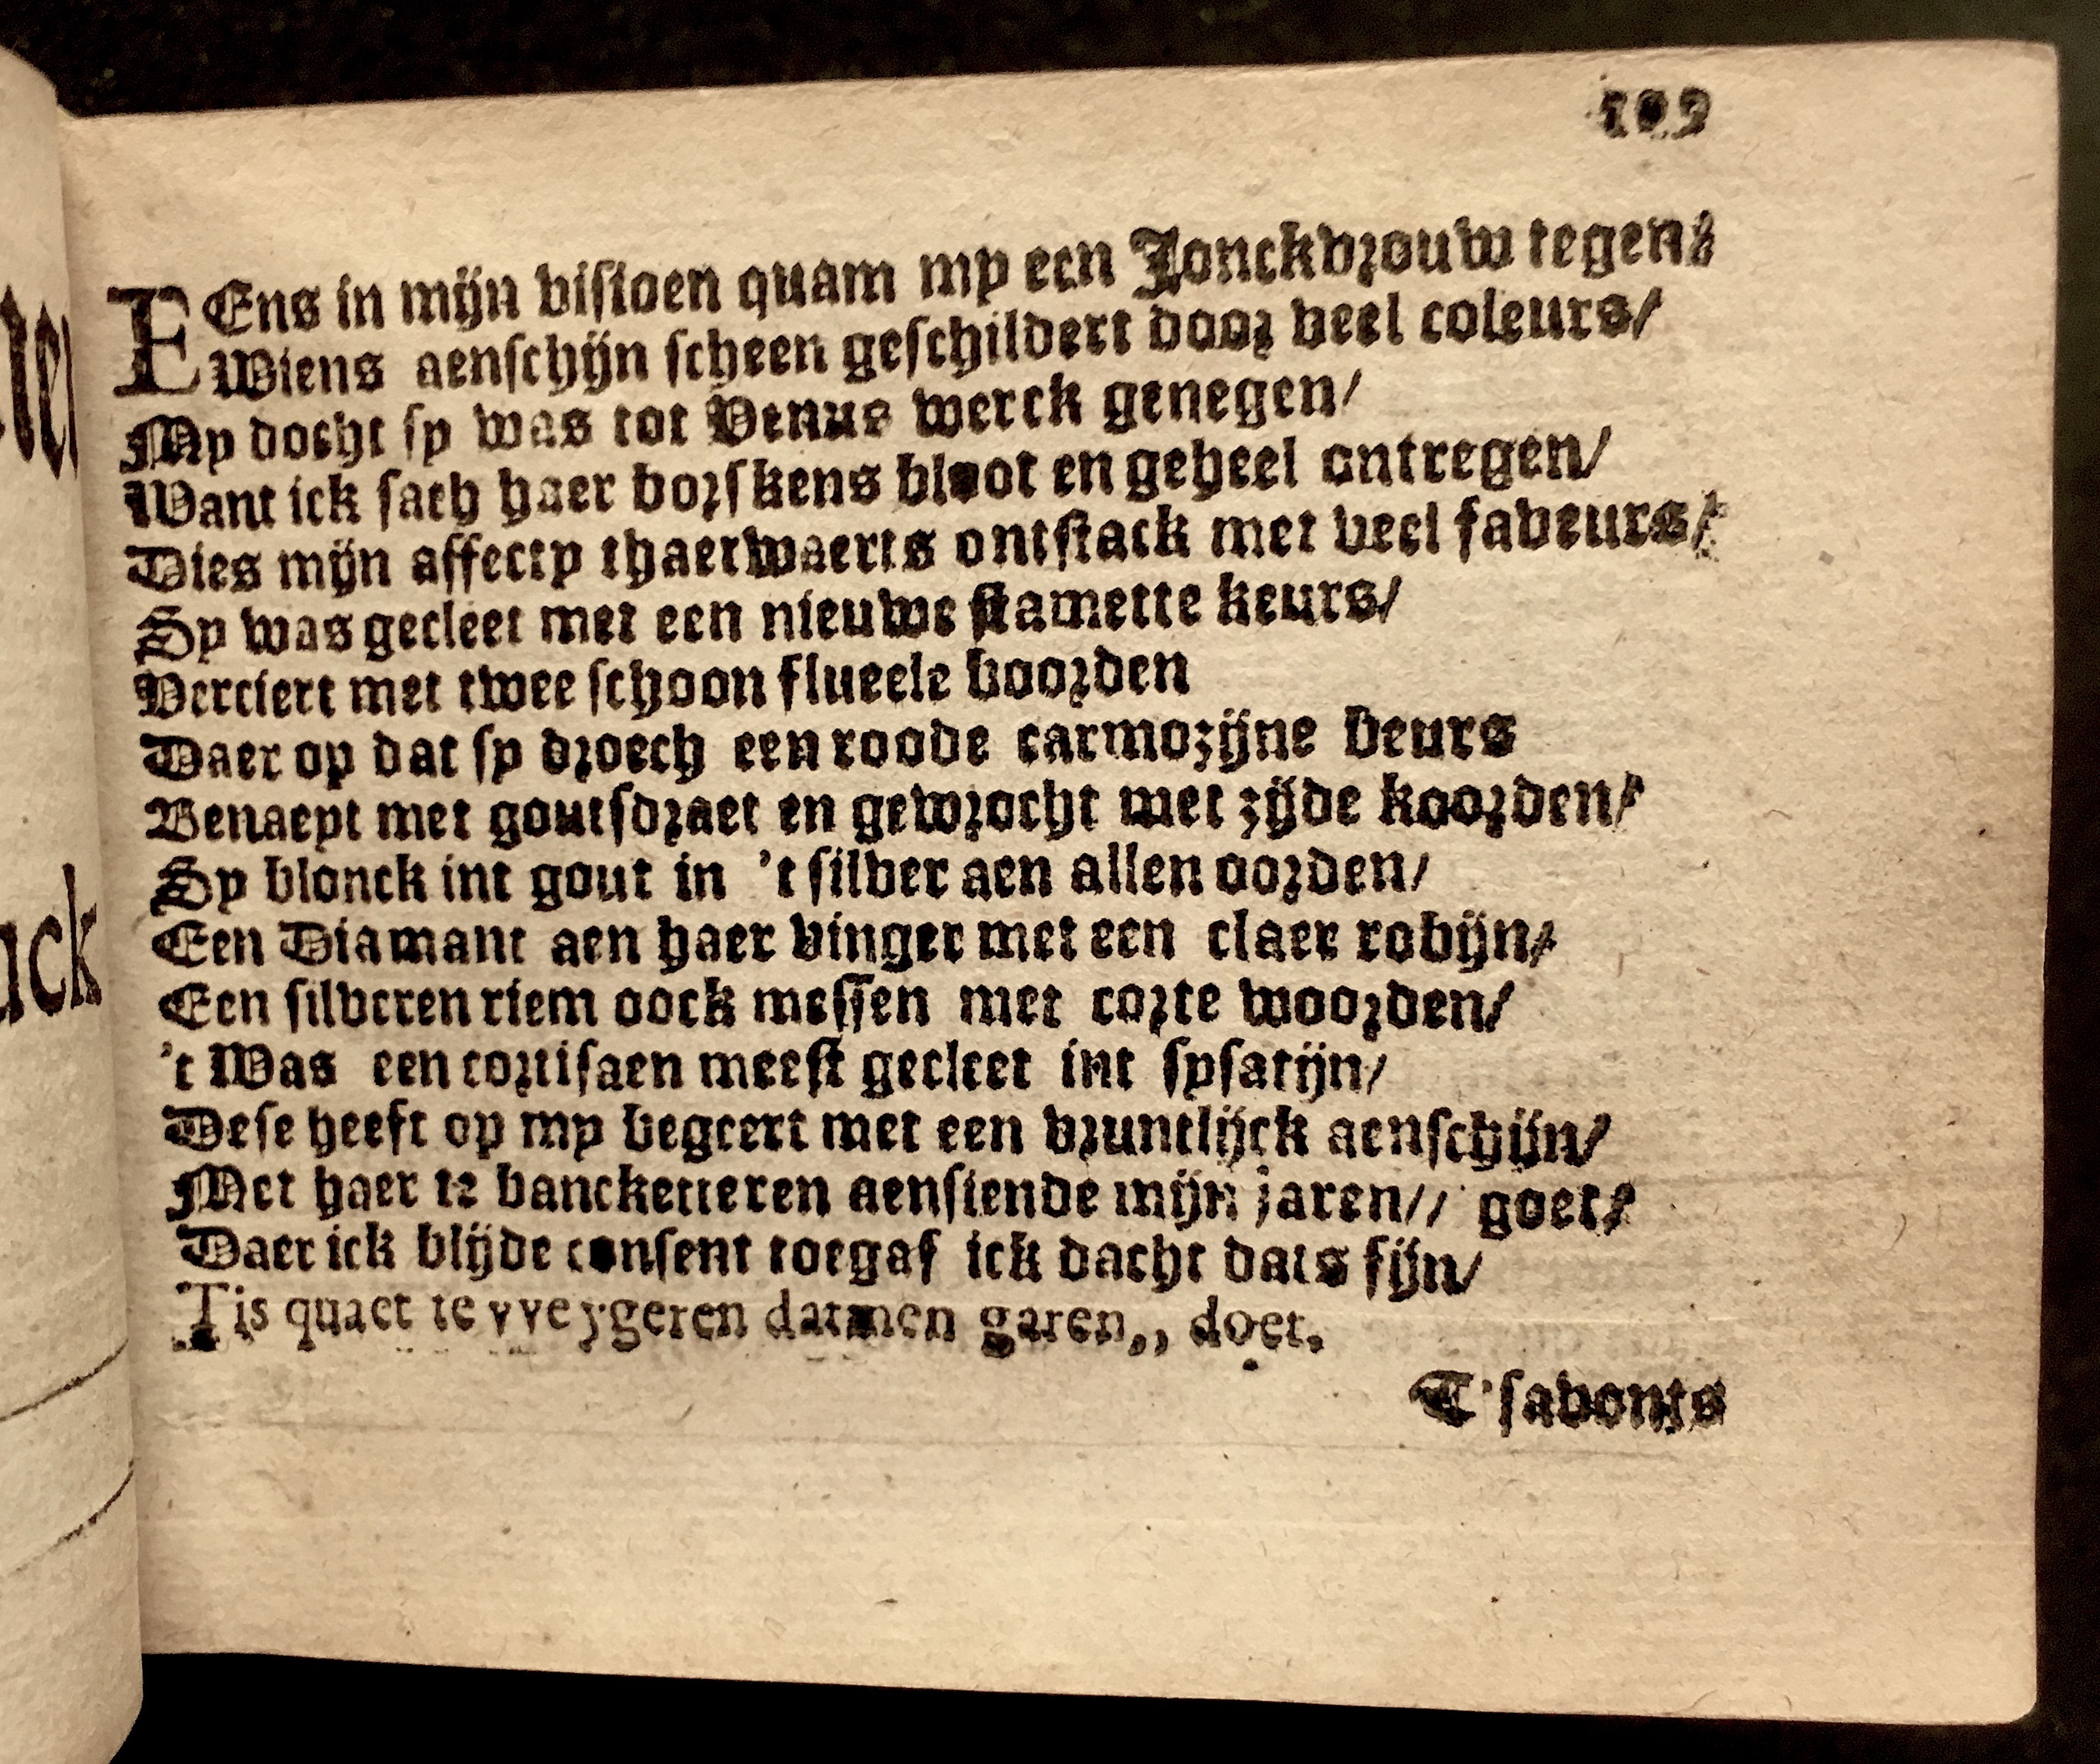 109
EEns in mijn visioen quam my een Jonckvrouw tegens
Wiens aenschijn scheen geschildert door veel coleurs/
My docht sy was tot Venus werck genegen/
Want ick sach haer borskens bloot en geheel ontregen/
Dies mijn affecty thaerwaerts ontstack met veel faveurs/
Sy was gecleet met een nieuwe stamette keurs/
Verciert met twee schoon flueele boorden
Daer op dat sy droech een roode carmozijne beurs
Benaeyt met goutsdraet en gewrocht met zijde koorden/
Sy blonck int gout in 't silver aen allen oorden/
Een Diamant aen haer vinger met een claer robijn/
Een silveren riem oock messen met corte woorden/
't Was een cortisaen meest gecleet int sysatijn/
Dese heeft op my begeert met een vruntlijck aenschijn/
Met haer te bancketteren aensiende mijn jaren// goet/
Daer ick blijde consent toegaf ick dacht dats fijn/
Tis quaet te vveygeren datmen garen,, doet.
T'savonts